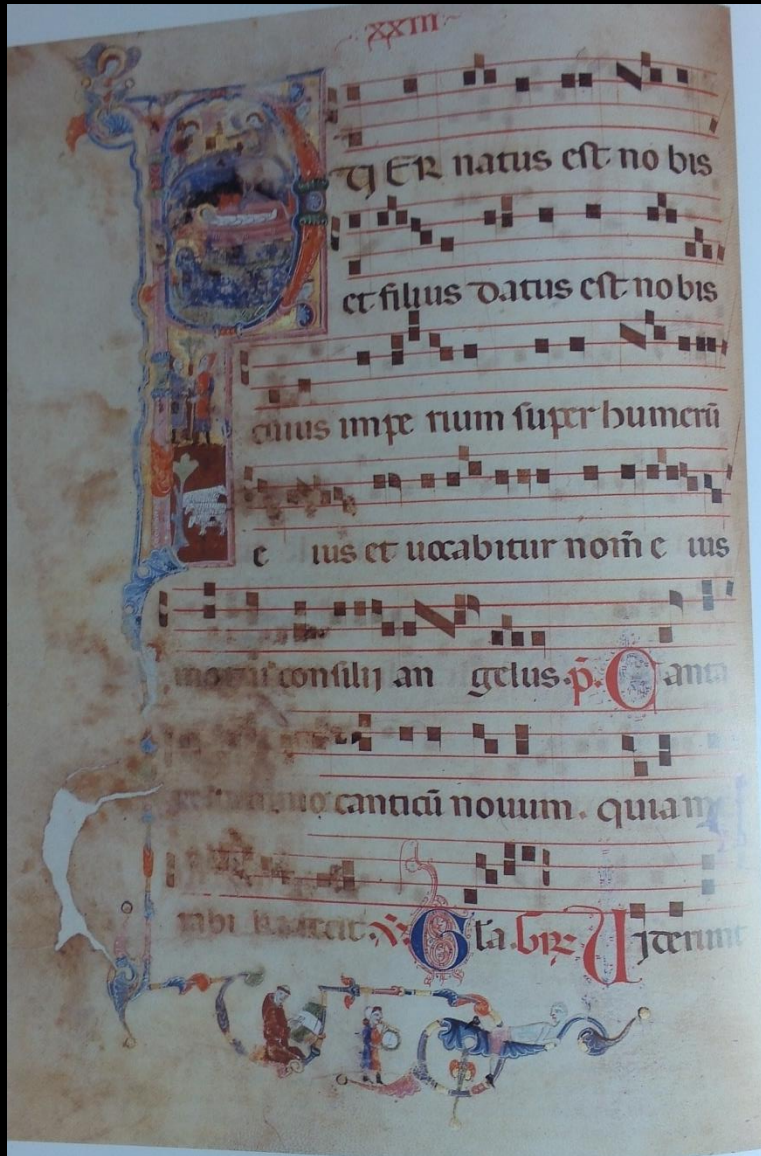 XXIII
PUER natus est no bis
et filius datus est nobis
cuius impe rium super humerū
e ius et uocabitur nom̄ e ius
consilij an gelus. p̄. Canta
canticū nouum. quia m
rabi Gl̄a. Uiderunt